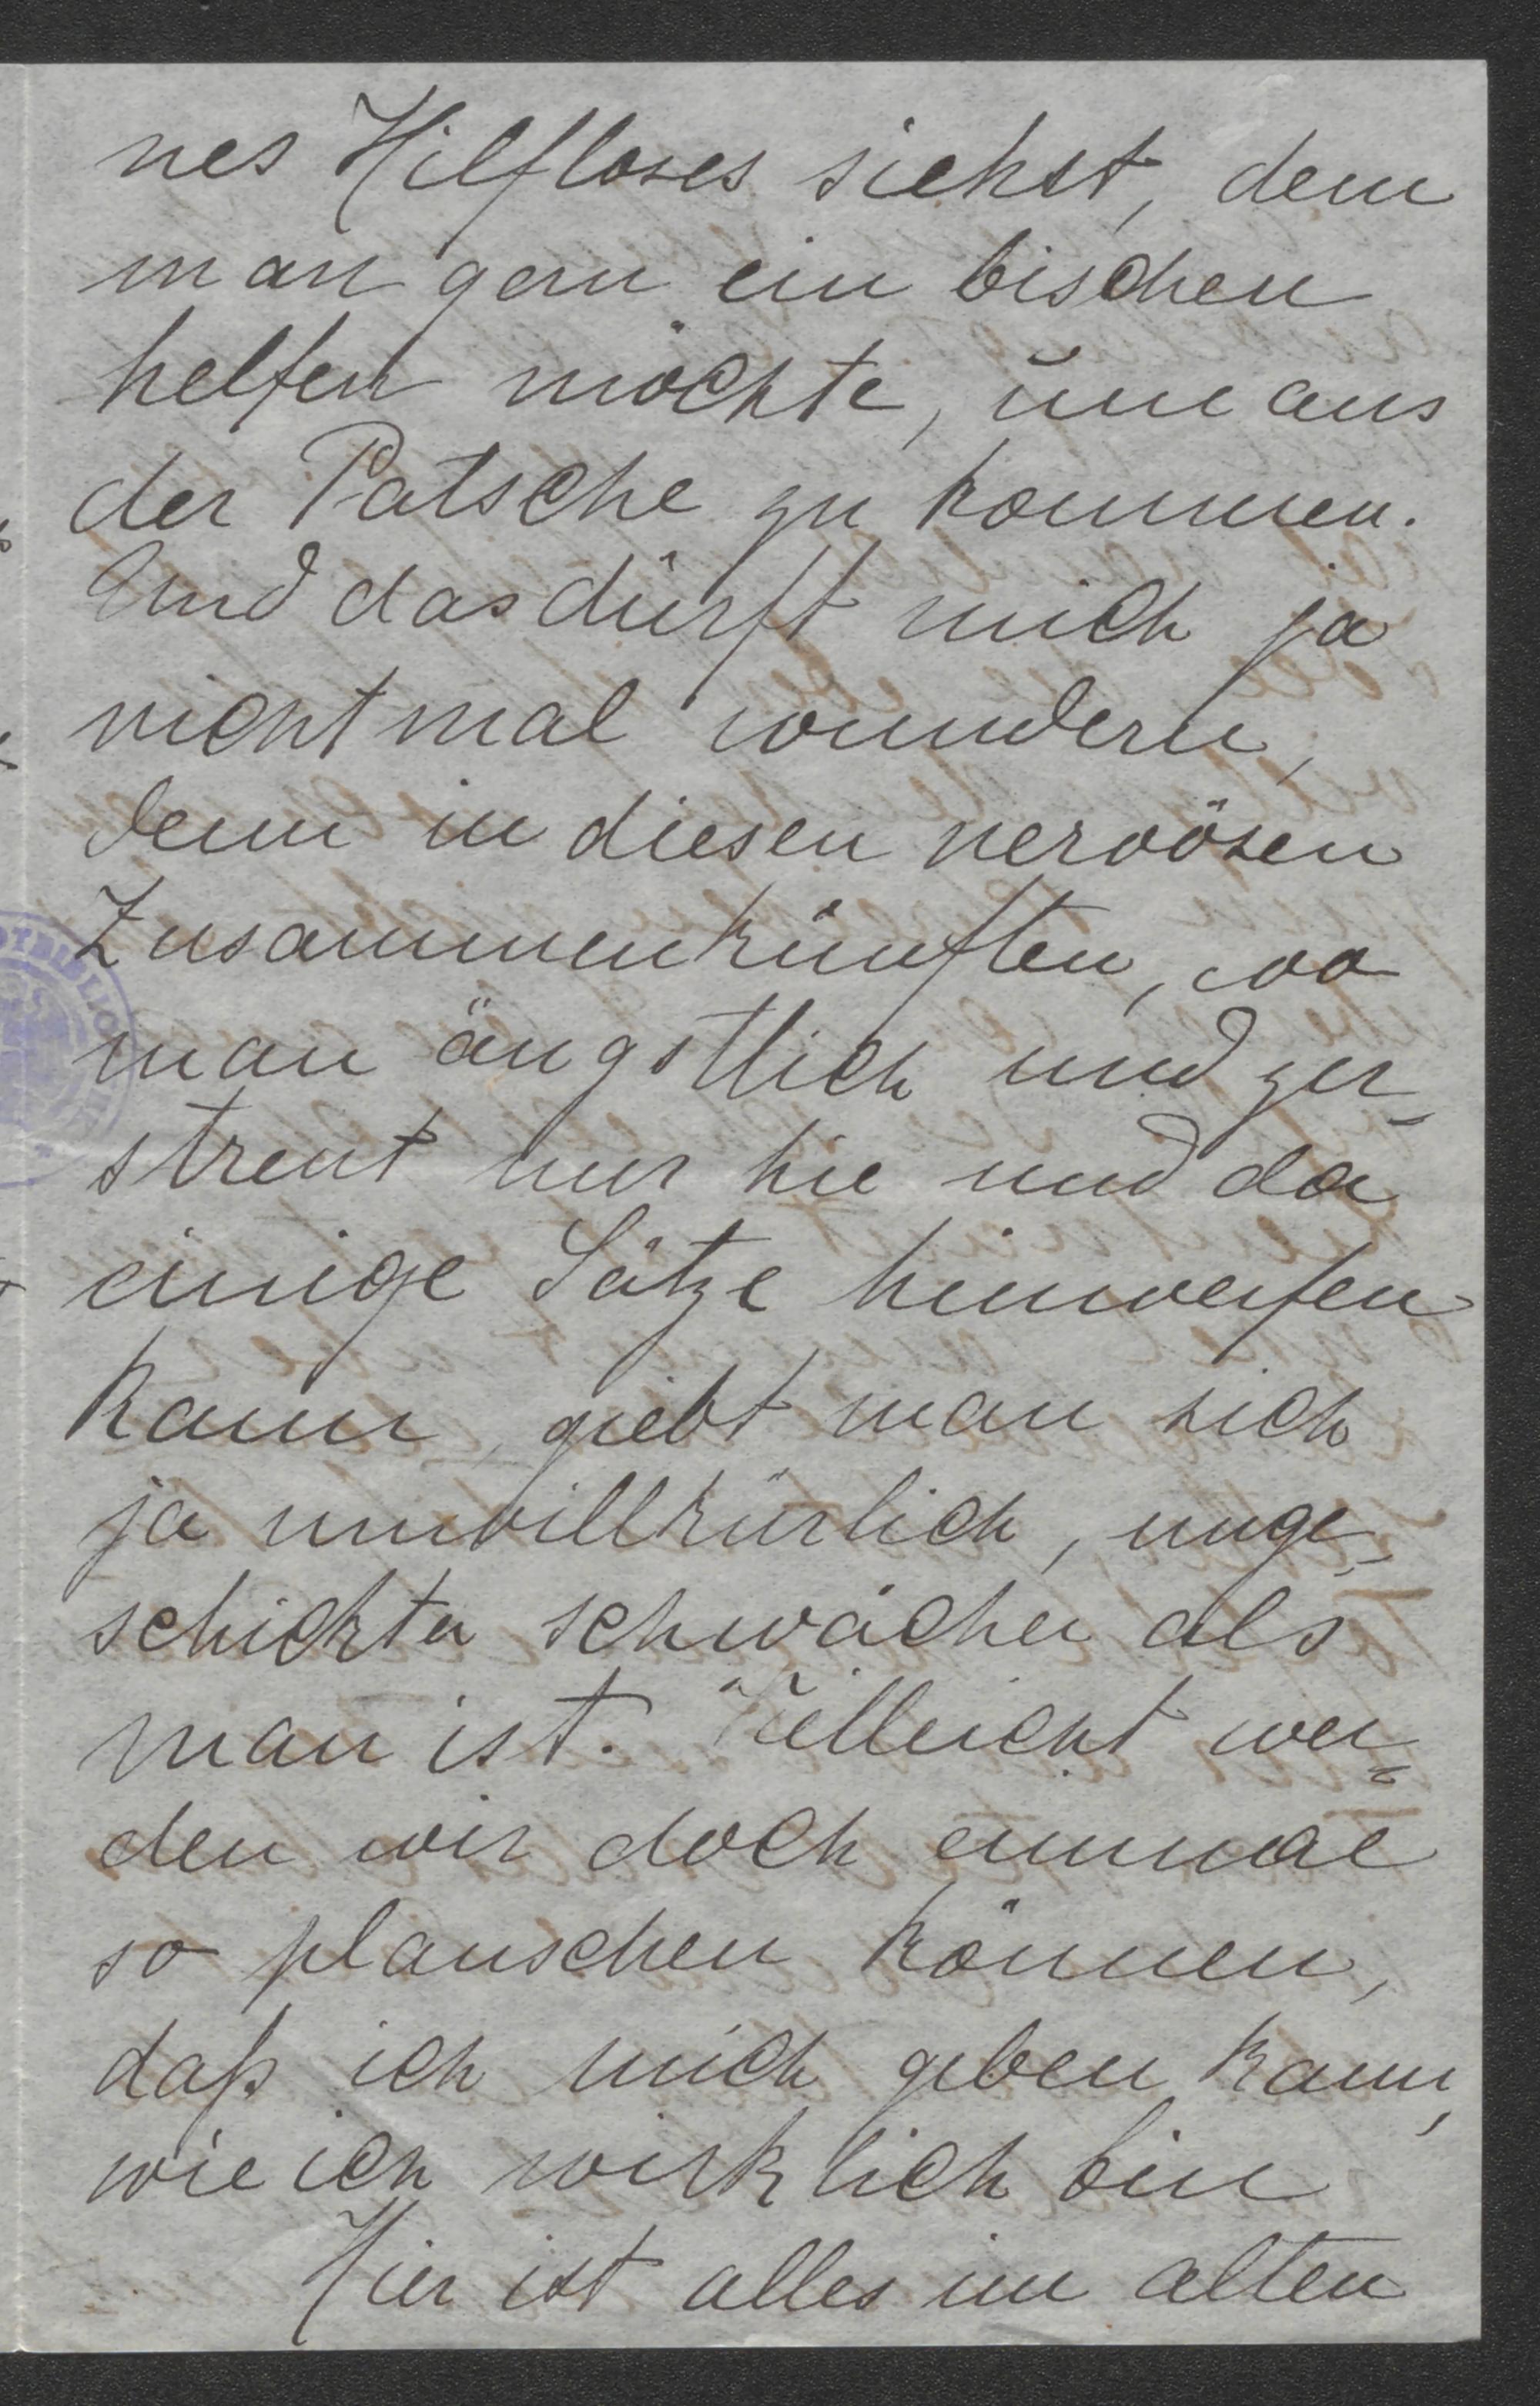 nes Hilfloses siehst, dem
man gern ein bischen
helfen möchte, um aus
der Patsche zu kommen.
Und das dürft mich ja
nicht mal wundern,
denn in diesen nervösen
Zusammenkünften, wo
man ängstlich und zer-
streut nur hie und da
einige Sätze hinwerfen
kann, giebt man sich
ja unwillkürlich, unge-
schickter schwächer als
man ist. Vielleicht wer-
den wir doch einmal
so plauschen können,
daß ich mich geben kann,
wie ich wirklich bin
Hier ist alles im alten